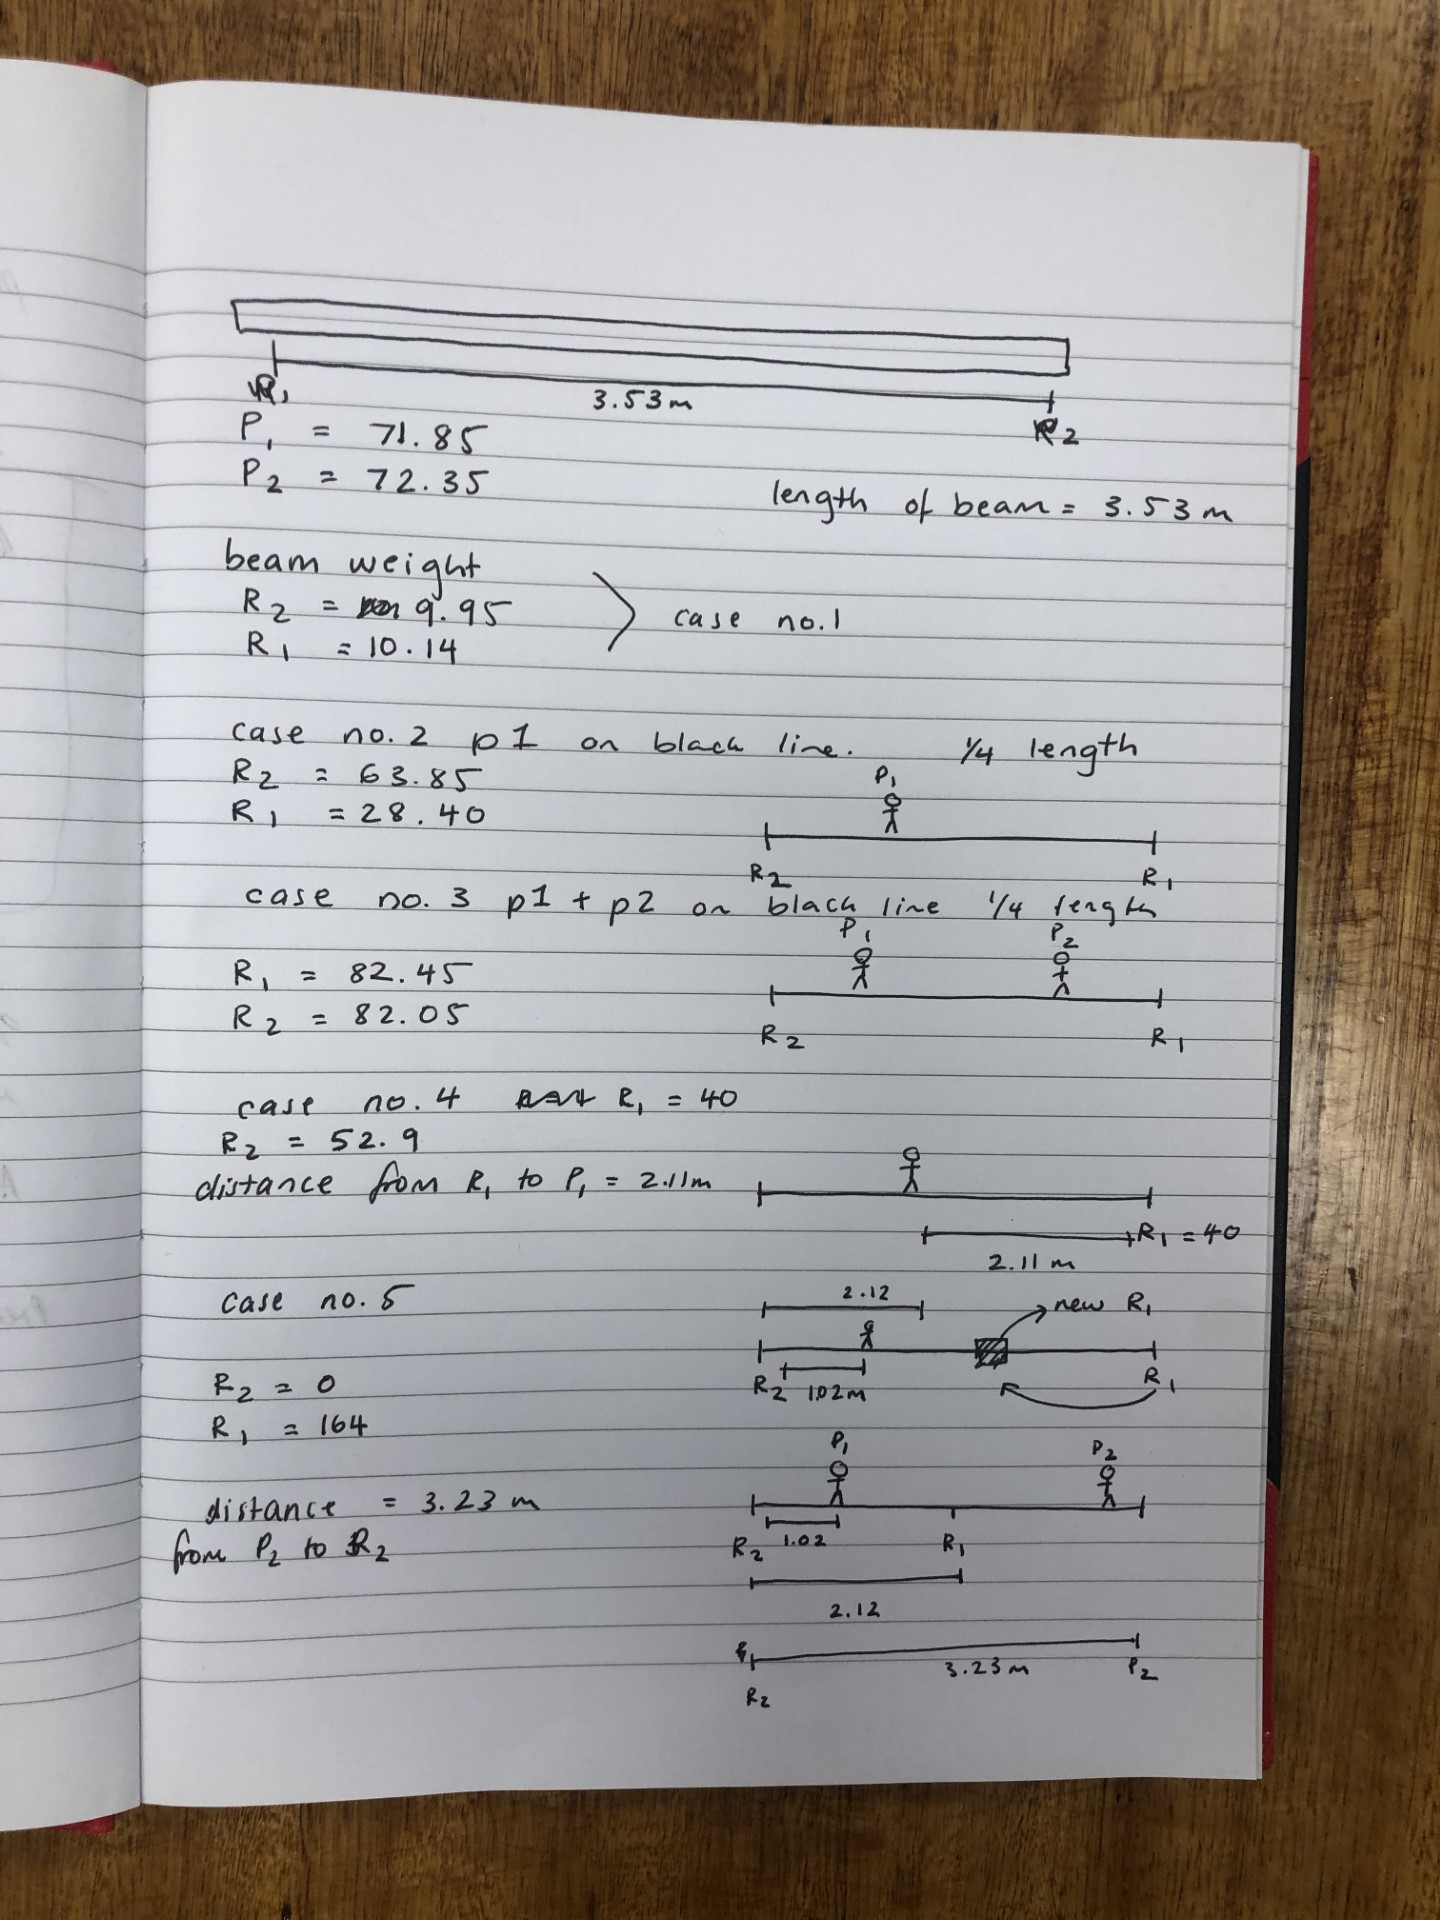 R1
3.53m
R2
P1 = 71.85
P2 = 72.35
length of beam = 3.53m
beam weight
R2 = 9.95
R1 = 10.14
case no.1
case no.2 p1 on black line. 1/4 length
R2 = 63.85
R1 = 28.40
P1
R2
R1
case no.3 p1 + p2 on black line 1/4 length
P1
P2
R1 = 82.45
R2 = 82.05
R2
R1
case no.4 R1 = 40
R2 = 52.9
distance from R1 to P1 = 2.11m
R1 = 40
2.11m
case no.5
2.12
new R1
R2
1.02m
R1
R2 = 0
R1 = 164
P1
P2
distance = 3.23m
from P2 to R2
R2
1.02
R1
2.12
3.23m
P2
R2